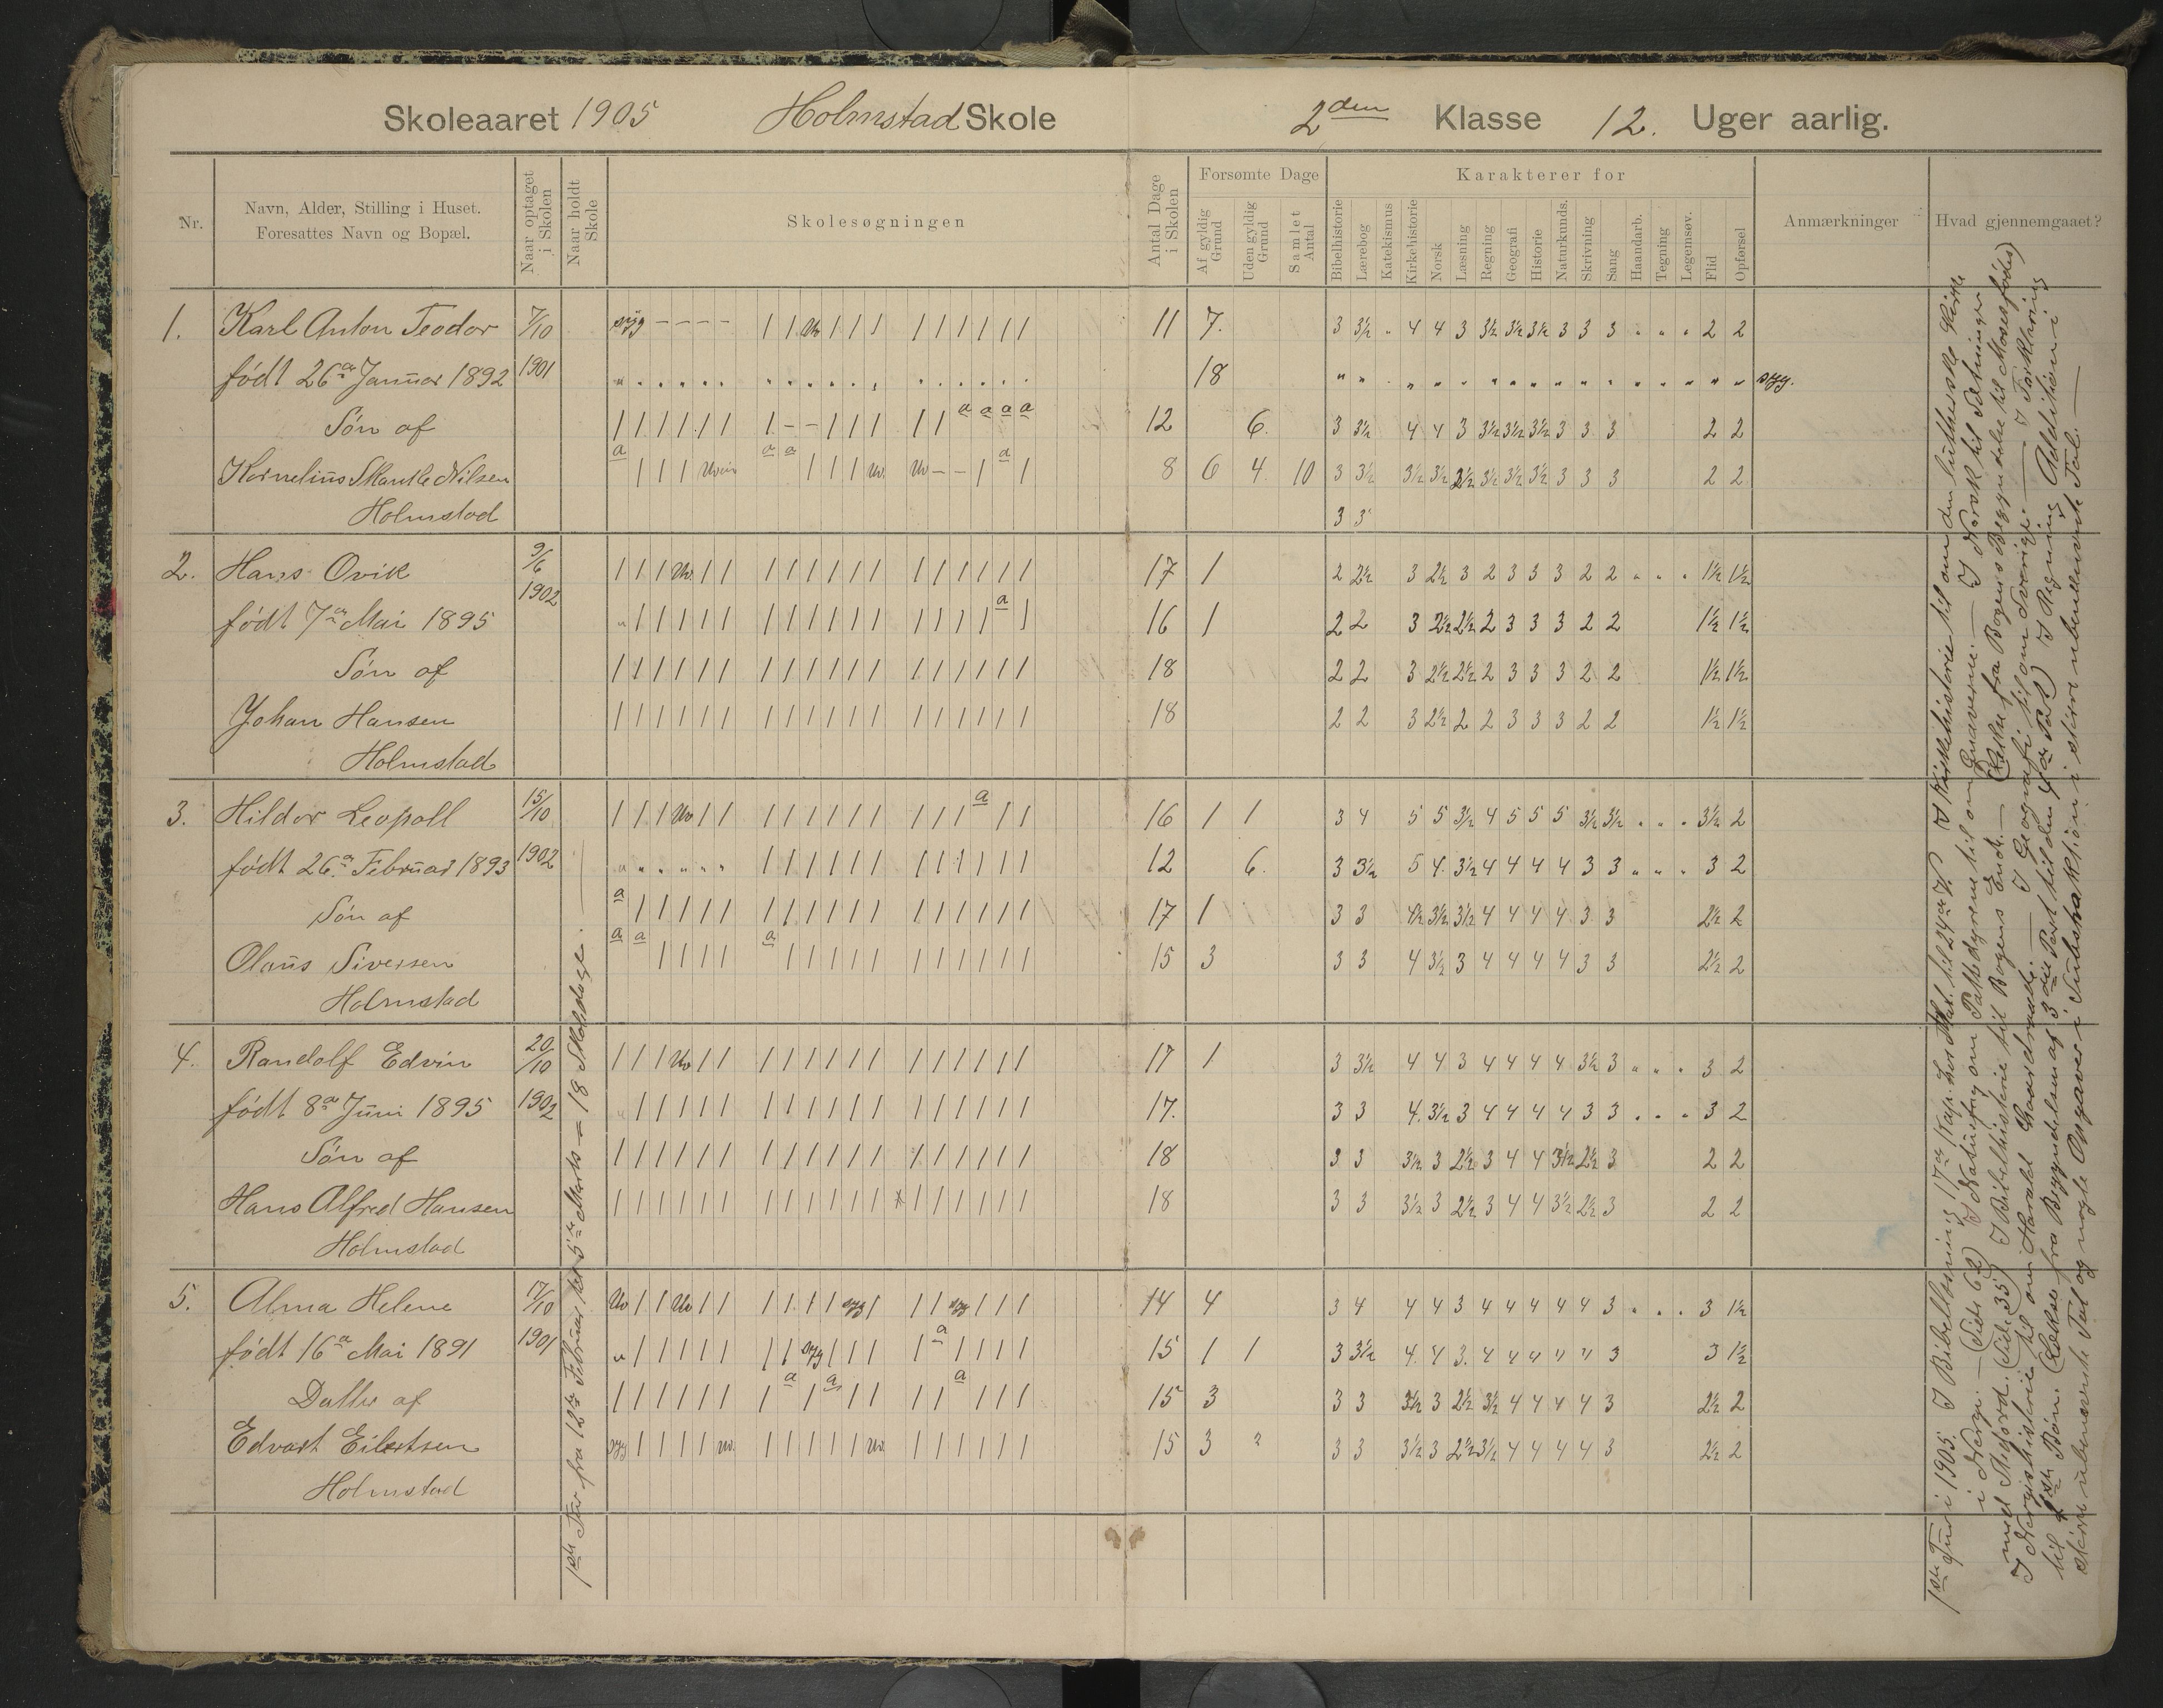 Skoleaaret 1905 Holmstad Skole 2den Klasse 12. Uger aarlig.
Nr.
Navn, Alder, Stilling i Huset.
Foresattes Navn og Bopæl.
Naar optaget i Skolen
Naar holdt Skole
Skolesøgningen
Antal Dage i Skolen
Forsømte Dage
Af gyldig Grund
Uden gyldig Grund
Samlet Antal
Karakterer for
Bibelhistorie
Lærebog
Katekismus
Kirkehistorie
Norsk
Læsning
Regning
Geografi
Historie
Naturkunds.
Skrivning
Sang
Haandarb.
Tegning
Legemsøv.
Flid
Opførsel
Anmærkninger
Hvad gjennemgaaet?
1. Karl Anton Teodor 7/10 syg - - - - / / Uv / / / / / / / / / 11 7. 3 3½ " 4 4 3 3½ 3½ 3½ 3 3 3 " " " 2 2
født 26de Januar 1892 1901 18 syg.
Søn af / / / / / / / - - / / / / / a a a a 12 6. 3 3½ 4 4 3 3½ 3½ 3½ 3 3 3 2 2
Kornelius Skanke Nilsen a / / / a a / / / Uv. Uv - - / a / 8 6 4 10 3 3½ 3½ 3½ 2½ 3½ 3½ 3½ 3 3 3 2 2
Holmstad 3 3
2. Hans Ovik 9/6 / / / Uv / / / / / / / / / / / / / / 17 1 2 2½ 3 2½ 3 2 3 3 3 2 2 " " " 1½ 1½
født 7de Mai 1895 1902 " / / / / / / / / / / / / / / / a / 16 1 2 2 3 2½ 2½ 2 3 3 3 2 2 1½ 1½
Søn af / / / / / / / / / / / / / / / / / / 18 2 2 3 2½ 2½ 2 3 3 3 2 2 1½ 1½
Johan Hansen / / / / / / / / / / / / / / / / / / 18 2 2 3 2½ 2 2 3 3 3 2 2 1½ 1½
Holmstad
3. Hildor Leopoll 15/10 / / / Uv / / / / / / / / / / / a / / 16 1 1 3 4 5 5 3½ 4 5 5 5 3½ 3½ " " " 3½ 2
født 26de Februar 1893 1902 " " " " " " / / / / / / / / / / / / 12 6. 3 3½ 5 4 3½ 4 4 4 4 3 3 " " " 3 2
Søn af a / / / / / / / / / / / / / / / / / 17 1 3 3 4½ 3½ 3½ 4 4 4 4 3 3 2½ 2
Olaus Siversen a a / / / / a / / / / / / / / / / / 15 3 3 3 4 3½ 3 4 4 4 4 3 3 2½ 2
Holmstad
4. Randolf Edvin 20/10 / / / Uv / / / / / / / / / / / / / / 17 1 3 3½ 4 4 3 4 4 4 4 3½ 3 " " " 3 2
født 8de Juni 1895 1902 / / / / / / / / / / / / / / / / / 17. 3 3 4. 3½ 3 4 4 4 4 3 3 " " " 3 2
Søn af / / / / / / / / / / / / / / / / / / 18 3 3 3½ 3 2½ 3 4 4 3½ 2½ 3 2 2
Hans Alfred Hansen / / / / / / / / / / / / x / / / / / / 18 3 3 3½ 3 2½ 3 4 4 3½ 2½ 3 2 2
Holmstad
5. Alma Helene 17/10 Uv / / Uv / / / / / / syg / / / syg / / / 14 4 3 4 4 4 3 4 4 4 4 4 3 " " " 3 1½
født 16de Mai 1891 1901 " / / / / / / / syg / / / / a / / / / 15 1 1 3 3½ 4 4 3. 4 4 4 4 4 3 3 1½
Datter af / / / / / / / a / a / / / / a / / / 15 3 3 3 3½ 3 2½ 3½ 4 4 4 4 3 2½ 2
Edvart Eilertsen syg / / / / Uv. / / / / / Uv. / / / / / / 15 3 3 3 3½ 3 2½ 3½ 4 4 4 4 3 2½ 2
Holmstad
1ste Tur fra 12te Februar til 5te Marts = 18 Skoledage.
1ste Tur i 1905. I Bibellæsning 17de Kap. hos Mat. til 24de V. I Kirkehistorie til om den lutherske Kirke
i Norge. (Side 62) I Naturfag om Pattedyrene til om Gnaverne. I Norsk til Sætninger
med Stoford. (Side 35) I Bibelhistorie til Bogens Ende. (Lekse fra Bogens Begyndelse til Moses fødes)
I Norgeshistorie til om Harald Gaardraade. I Geografi til om Sverige. I Forklaring
til 1ste Bøn. (Lekse fra Begyndelsen af 3die Part til den 4de Part) I Regning Addition i
større ubenævnte Tal og nogle Opgaver i Subtraktion i større ubenævnte Tal.